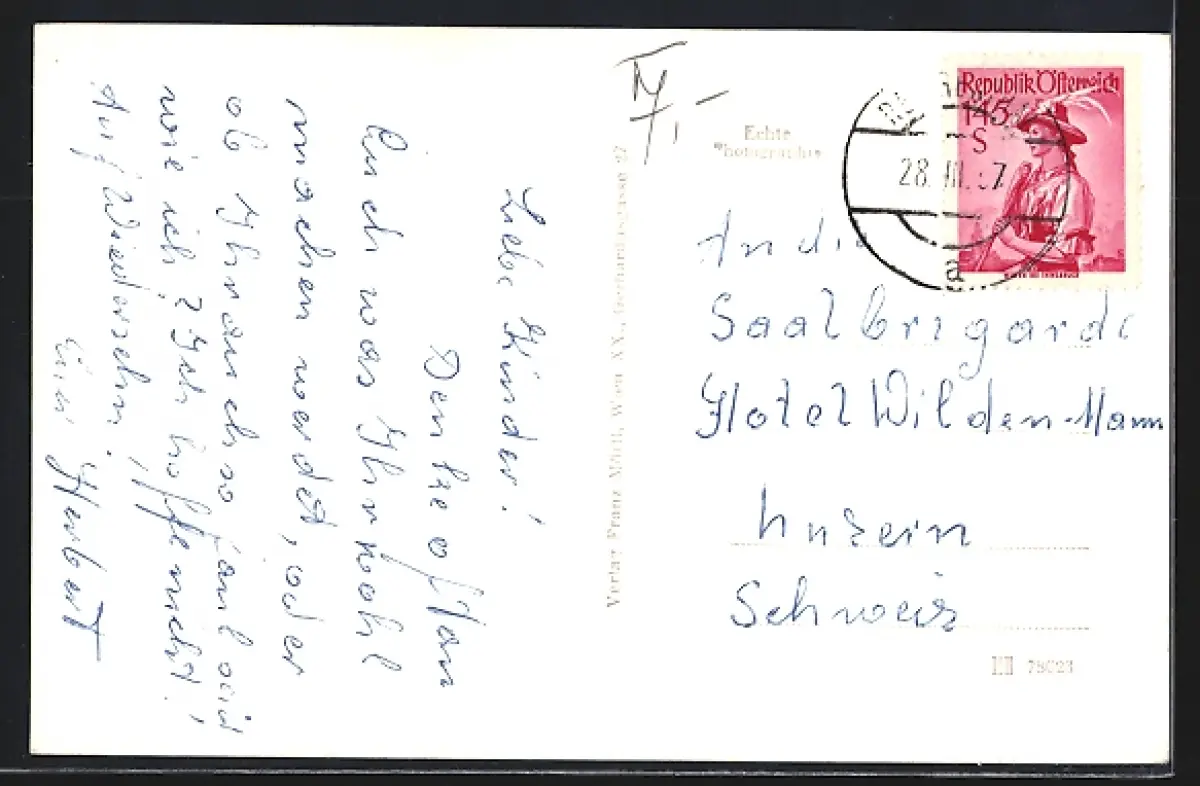 Liebe Kinder!
Denke oft an
Euch was Ihr wohl
machen werdet, oder
ob Ihr auch so faul seid
wie ich? Ich hoffe nicht!
Auf Wiedersehn!
Euer Herbert
Verlag Franz Mörtl, Wien XX., Gerhardusgasse 27
IV/,-
Echte
Photographie
Republik Österreich
1.45
S
28. III. 57
a
An die
Saalbrigade
Hotel Wilden-Mann
Luzern
Schweiz
78023